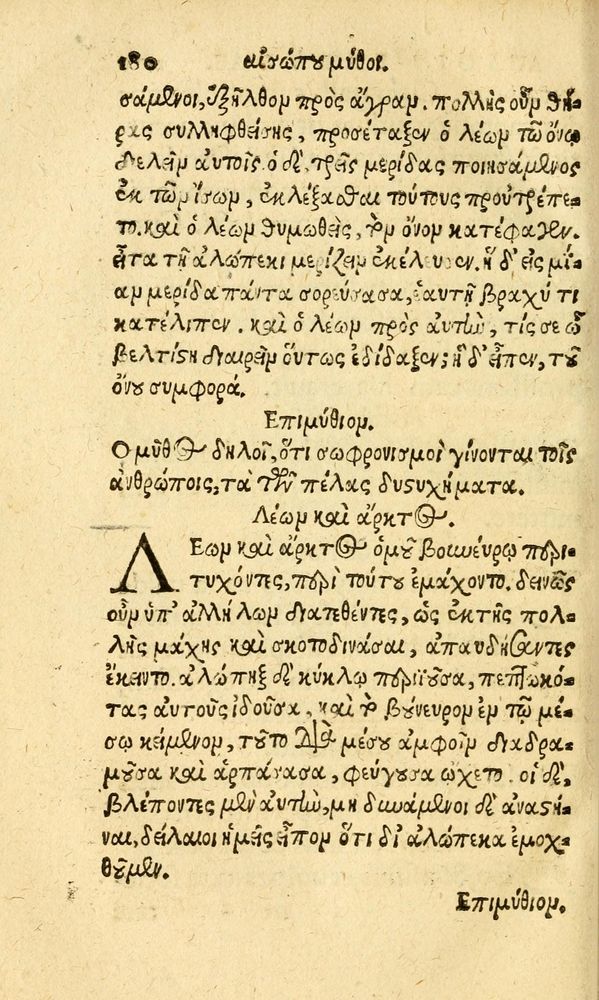 180 αἰσώπου μῦθοι.
σάμενοι, ἐξῆλθον πρὸς ἄγραν. πολλῆς οὖν θή-
ρας συλληφθείσης, προσέταξεν ὁ λέων τῷ ὄνῳ
διελεῖν αὐτοῖς. ὁ δὲ, τρεῖς μερίδας ποιησάμενος
ἐκ τῶν ἴσων, ἐκλέξασθαι τούτους προὐτρέπε-
το. καὶ ὁ λέων θυμωθεὶς, τὸν ὄνον κατέφαγεν.
εἶτα τῇ ἀλώπεκι μερίζειν ἐκέλευσεν. ἡ δ' εἰς μί-
αν μερίδα πάντα σορεύσασα, ἑαυτῇ βραχύ τι
κατέλιπεν. καὶ ὁ λέων πρὸς αὐτὴν, τίς σε ὦ
βελτίστη διαιρεῖν οὕτως ἐδίδαξεν; ἡ δ' εἶπεν, τοῦ
ὄνου συμφορά.
Επιμύθιον.
Ο μῦθος δηλοῖ, ὅτι σωφρονισμοὶ γίνονται τοῖς
ἀνθρώποις, τὰ τῶν πέλας δυστυχήματα.
Λέων καὶ ἄρκτος.
ΛΕων καὶ ἄρκτος ὁμοῦ βοῶ νεύρῳ περι-
τυχόντες, περὶ τούτου ἐμάχοντο. δεινῶς
οὖν ὑπ' ἀλλήλων διατεθέντες, ὡς ἐκ τῆς πολ-
λῆς μάχης καὶ σκοτοδινάσαι, ἀπαυδήσαντες
ἔκειντο. ἀλώπηξ δὲ κύκλῳ περιϊοῦσα, πεπτωκό-
τας αὐτοὺς ἰδοῦσα, καὶ τὸ βούνευρον ἐν τῷ μέ-
σῳ κείμενον, τοῦτο διὰ μέσου ἀμφοῖν διαδρα-
μοῦσα καὶ ἁρπάσασα, φεύγουσα ᾤχετο. οἱ δὲ,
βλέποντες μὲν αὐτὴν, μὴ δυνάμενοι δὲ ἀναστῆ-
ναι, δείλαιοι ἡμεῖς εἶπον ὅτι δι' ἀλώπεκα ἐμοχ-
θοῦμεν.
Επιμύθιον.